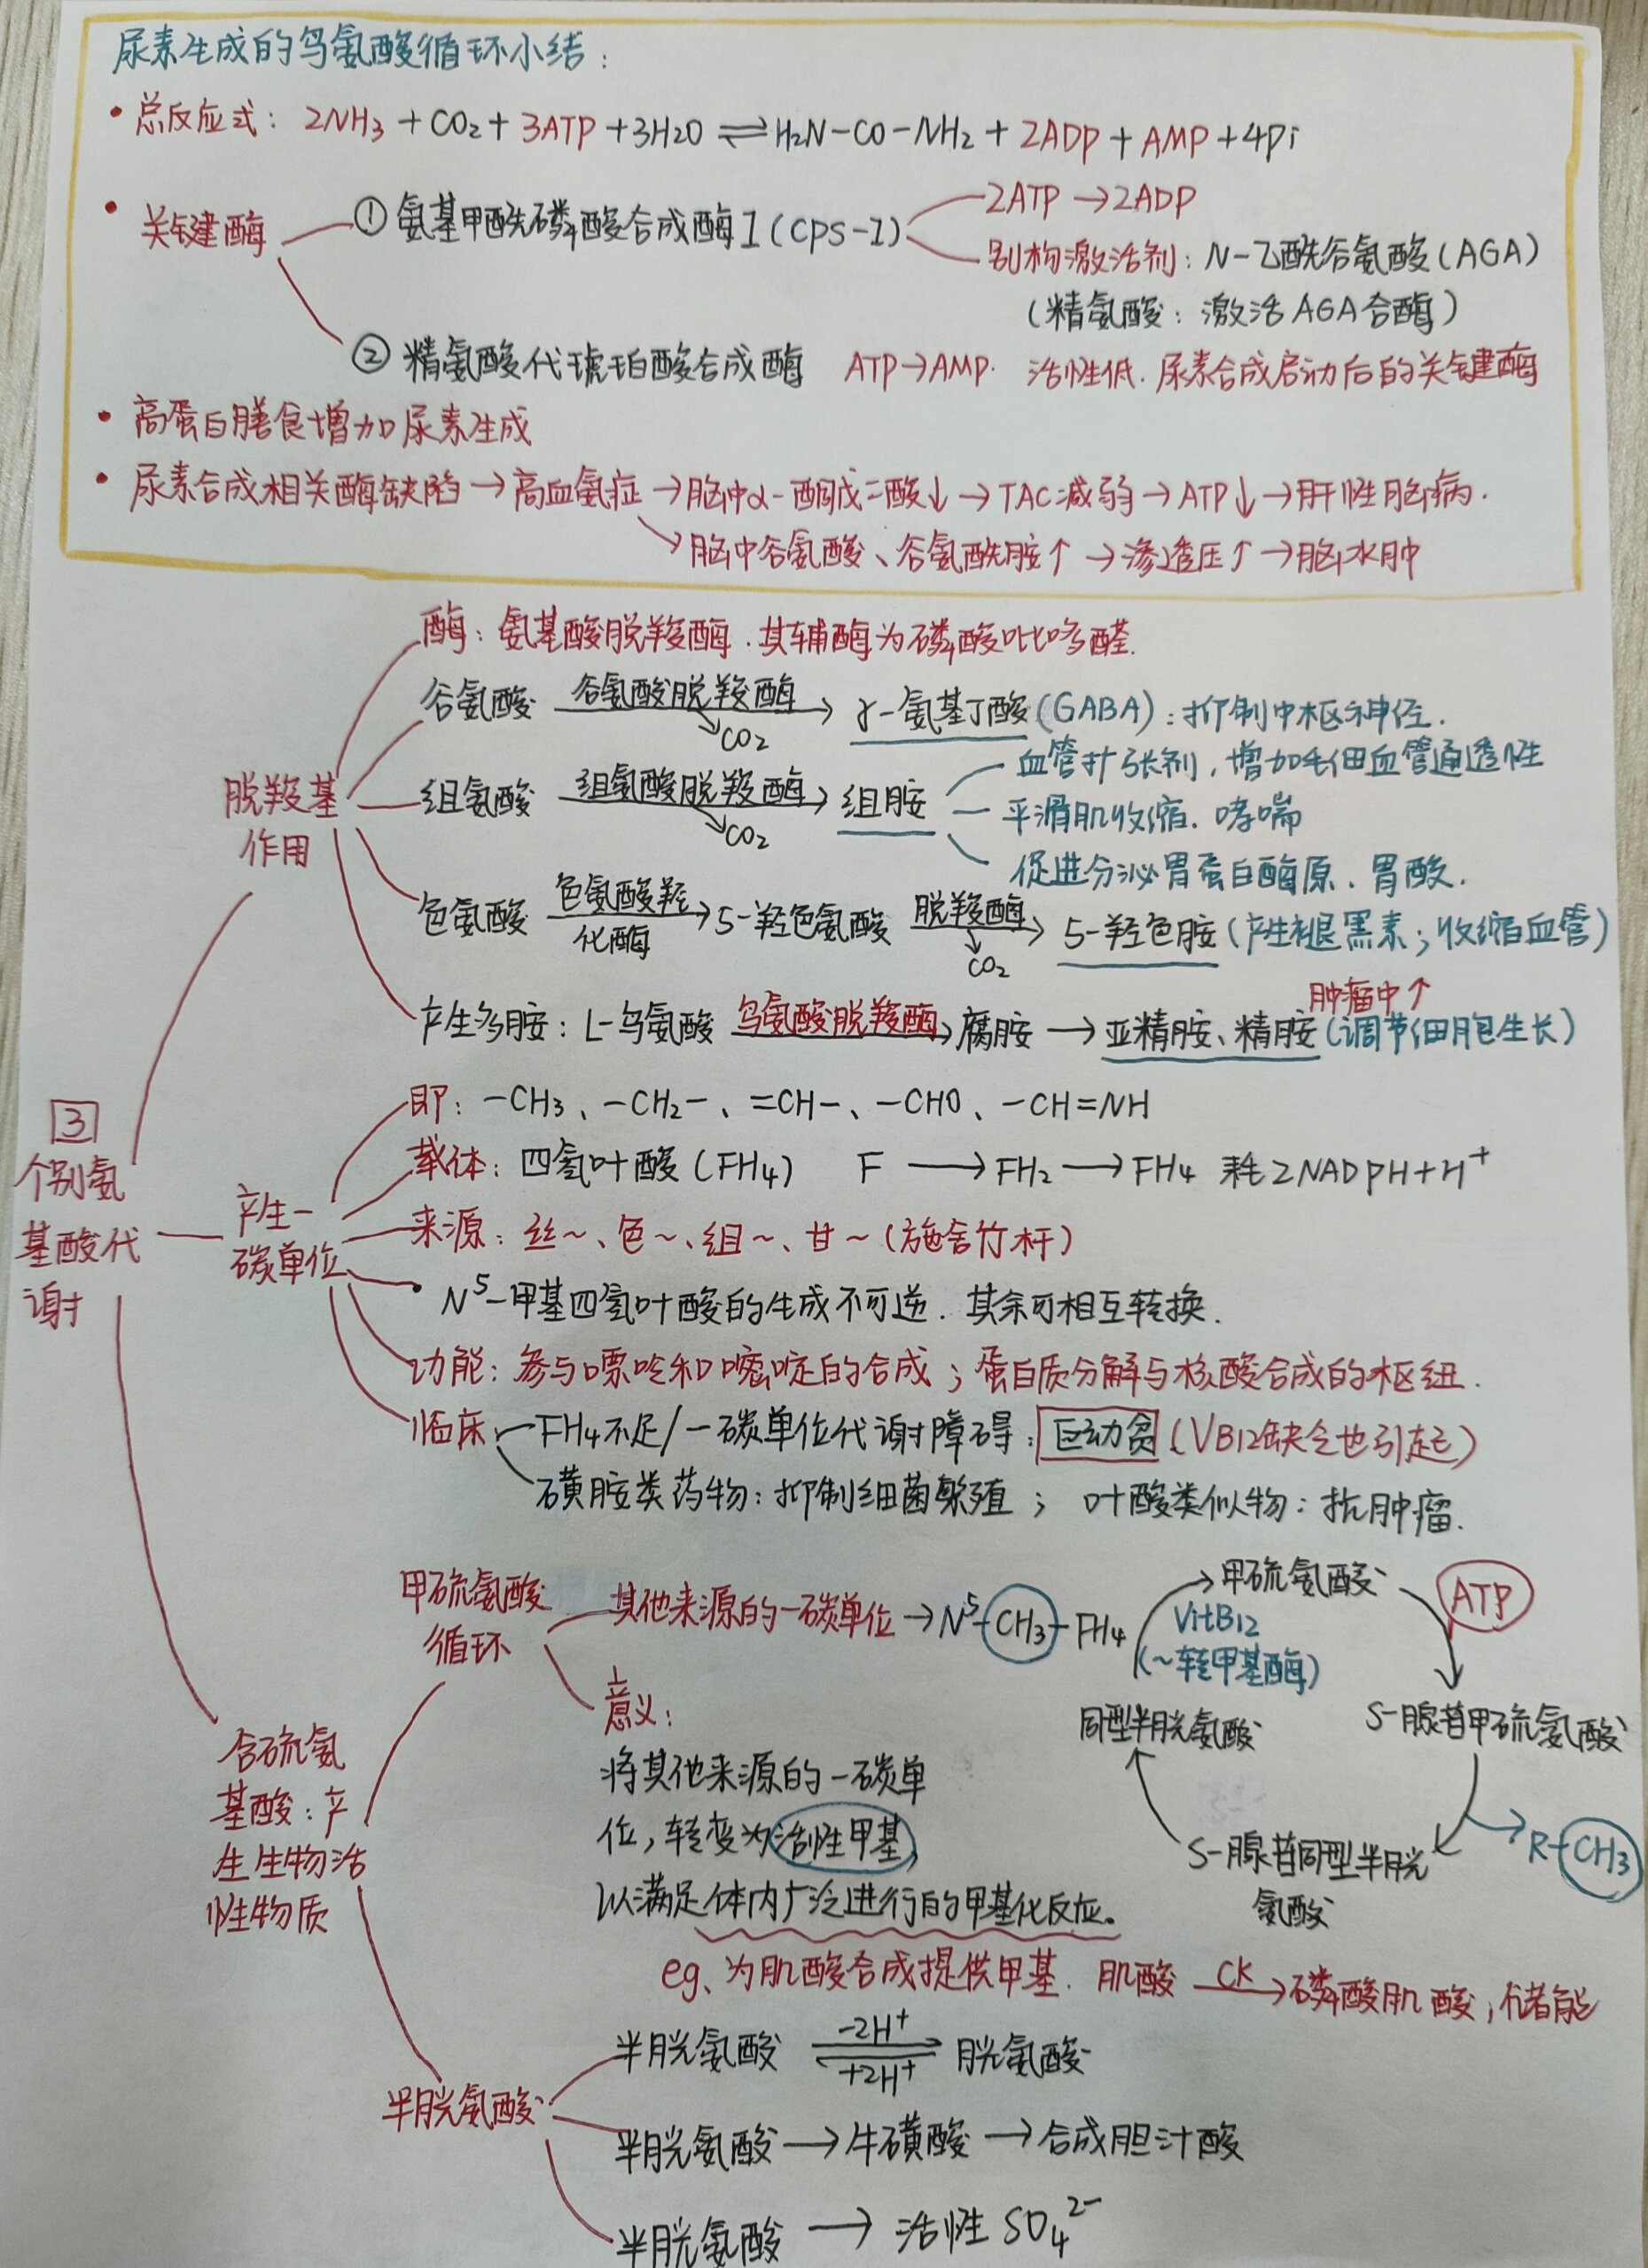 尿素生成的鸟氨酸循环小结：
• 总反应式：2NH₃ + CO₂ + 3ATP + 3H₂O ⇌ H₂N-CO-NH₂ + 2ADP + AMP + 4Pi
• 关键酶
① 氨基甲酰磷酸合成酶I (CPS-I)
2ATP → 2ADP
别构激活剂：N-乙酰谷氨酸 (AGA)
(精氨酸：激活AGA合酶)
② 精氨酸代琥珀酸合成酶 ATP→AMP. 活性低. 尿素合成启动后的关键酶
• 高蛋白膳食增加尿素生成
• 尿素合成相关酶缺陷 → 高血氨症 → 脑中α-酮戊二酸↓ → TAC减弱 → ATP↓ → 肝性脑病.
→ 脑中谷氨酸、谷氨酰胺↑ → 渗透压↑ → 脑水肿
3
个别氨
基酸代
谢
脱羧基
作用
酶：氨基酸脱羧酶. 其辅酶为磷酸吡哆醛.
谷氨酸 谷氨酸脱羧酶→ γ-氨基丁酸 (GABA)：抑制中枢神经.
CO₂
组氨酸 组氨酸脱羧酶→ 组胺
CO₂
血管扩张剂，增加毛细血管通透性
平滑肌收缩. 哮喘
促进分泌胃蛋白酶原、胃酸.
色氨酸 色氨酸羟化酶→ 5-羟色氨酸 脱羧酶→ 5-羟色胺 (产生褪黑素；收缩血管)
CO₂
肿瘤中↑
产生多胺：L-鸟氨酸 鸟氨酸脱羧酶→ 腐胺 → 亚精胺、精胺 (调节细胞生长)
产生一
碳单位
即：-CH₃、-CH₂-、=CH-、-CHO、-CH=NH
载体：四氢叶酸 (FH₄) F → FH₂ → FH₄ 耗2NADPH+H⁺
来源：丝~、色~、组~、甘~ (施舍竹杆)
N⁵-甲基四氢叶酸的生成不可逆. 其余可相互转换.
功能：参与嘌呤和嘧啶的合成；蛋白质分解与核酸合成的枢纽.
临床
FH₄不足/一碳单位代谢障碍：巨幼贫 (VB12缺乏也引起)
磺胺类药物：抑制细菌繁殖； 叶酸类似物：抗肿瘤.
含硫氨
基酸：产
生生物活
性物质
甲硫氨酸
循环
其他来源的一碳单位 → N⁵-CH₃-FH₄
甲硫氨酸
ATP
VitB12
(~转甲基酶)
同型半胱氨酸
S-腺苷甲硫氨酸
S-腺苷同型半胱
氨酸
R-CH₃
意义：
将其他来源的一碳单
位，转变为活性甲基，
以满足体内广泛进行的甲基化反应。
eg、为肌酸合成提供甲基. 肌酸 CK→ 磷酸肌酸，储能
半胱氨酸
半胱氨酸 -2H⁺ ⇌ +2H⁺ 胱氨酸
半胱氨酸 → 牛磺酸 → 合成胆汁酸
半胱氨酸 → 活性 SO₄²⁻